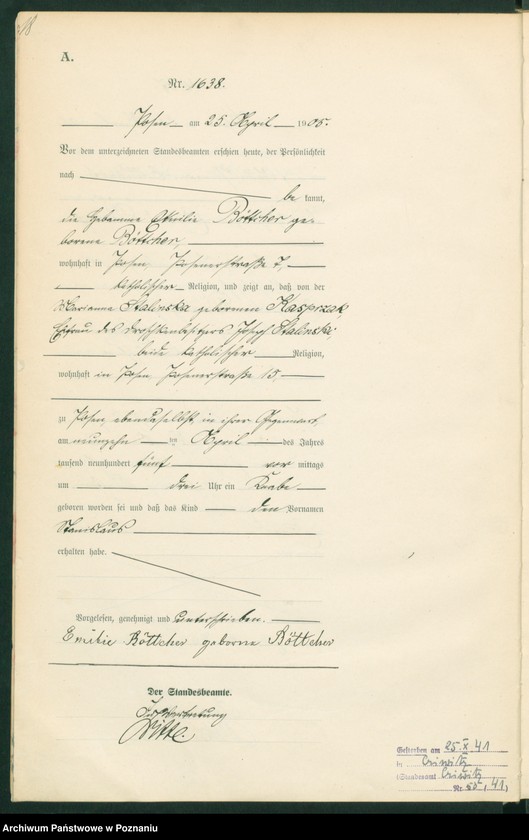 A.
Nr. 1638.
Posen am 25. April 1905.
Vor dem unterzeichneten Standesbeamten erschien heute, der Persönlichkeit
nach
be kannt,
die Hebamme Emilie Böttcher ge-
borene Böttcher,
wohnhaft in Posen, Posenerstraße 7,
katholischer Religion, und zeigte an, daß von der
Marianne Stalinska geborenen Kasprzak
Ehefrau des Droschkenbesitzers Joseph Stalinski,
beide katholischer Religion,
wohnhaft in Posen Posenerstraße 15,
zu Posen, ebendaselbst, in ihrer Gegenwart
am neunzehn ten April des Jahres
tausend neunhundert fünf vor mittags
um drei Uhr ein Knabe
geboren worden sei und daß das Kind den Vornamen
Stanislaus
erhalten habe.
Vorgelesen, genehmigt und unterschrieben.
Emilie Böttcher geborne Böttcher
Der Standesbeamte.
In Vertretung
Witte.
Gestorben am 25. X 41
in
(Standesamt
Nr. , 41)
Archiwum Państwowe w Poznaniu